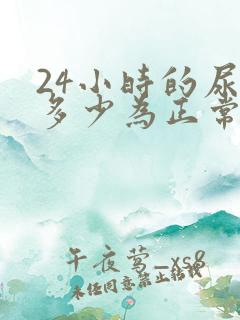 24小時的尿
多少為正常
午夜莺_xs8
未经同意禁止转载